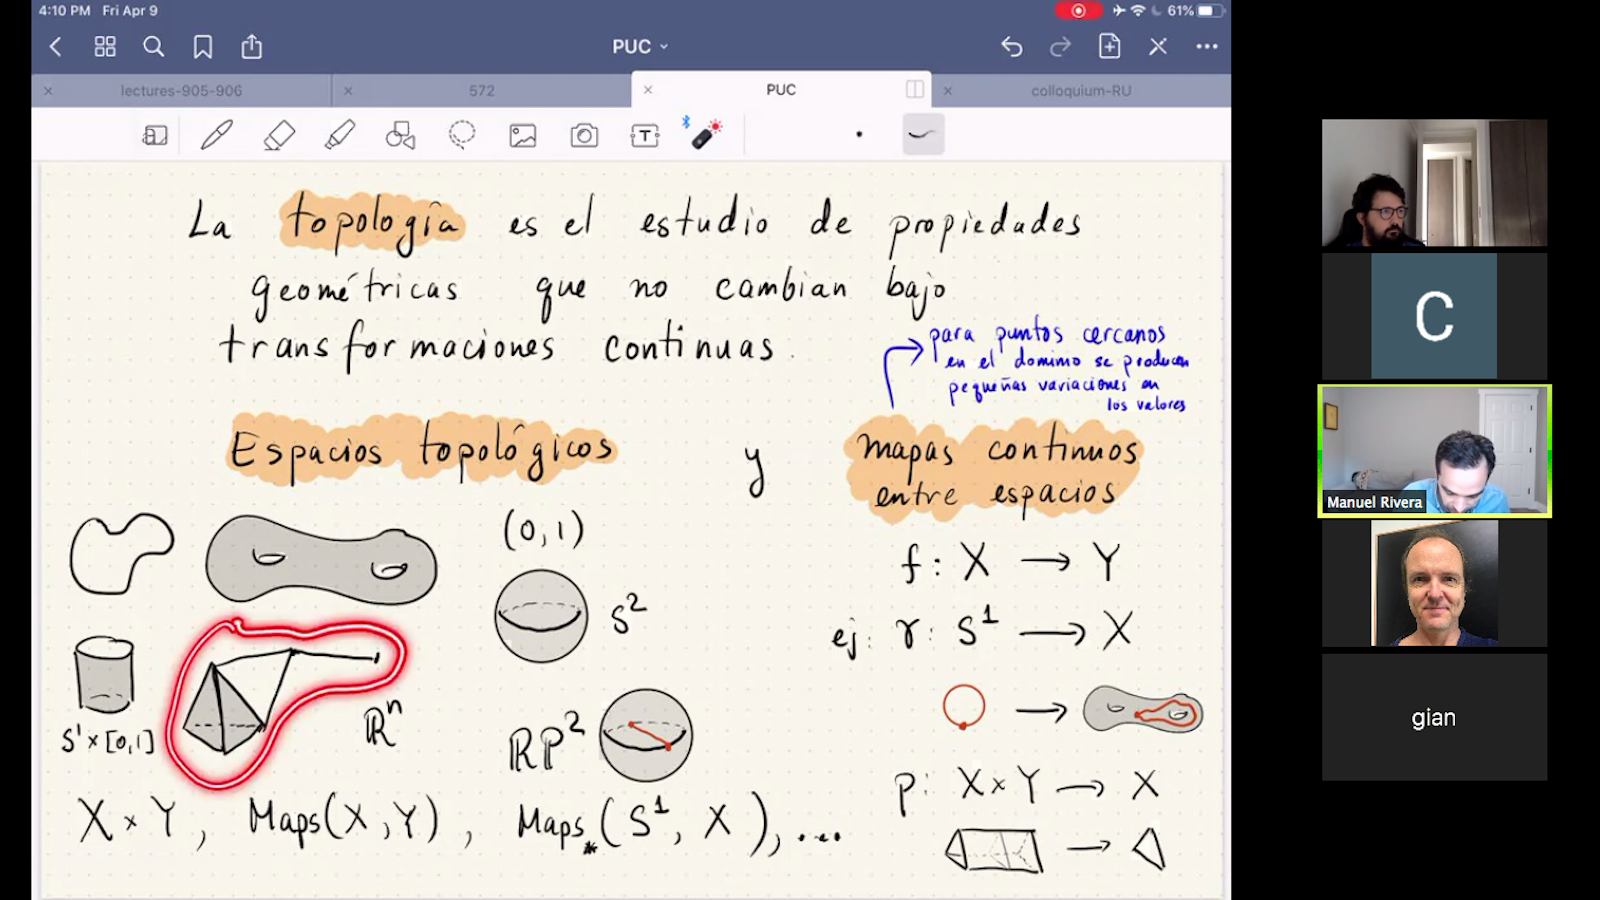 4:10 PM Fri Apr 9
61%
PUC
lectures-905-906
572
PUC
colloquium-RU
T
La topología es el estudio de propiedades
geométricas que no cambian bajo
transformaciones continuas.
para puntos cercanos
en el dominio se producen
pequeñas variaciones en
los valores
Espacios topológicos y mapas continuos
entre espacios
(0,1)
S²
S¹×[0,1]
ℝⁿ
ℝP²
X×Y, Maps(X,Y), Maps*(S¹, X), ...
f: X → Y
ej: γ: S¹ → X
p: X×Y → X
C
Manuel Rivera
gian